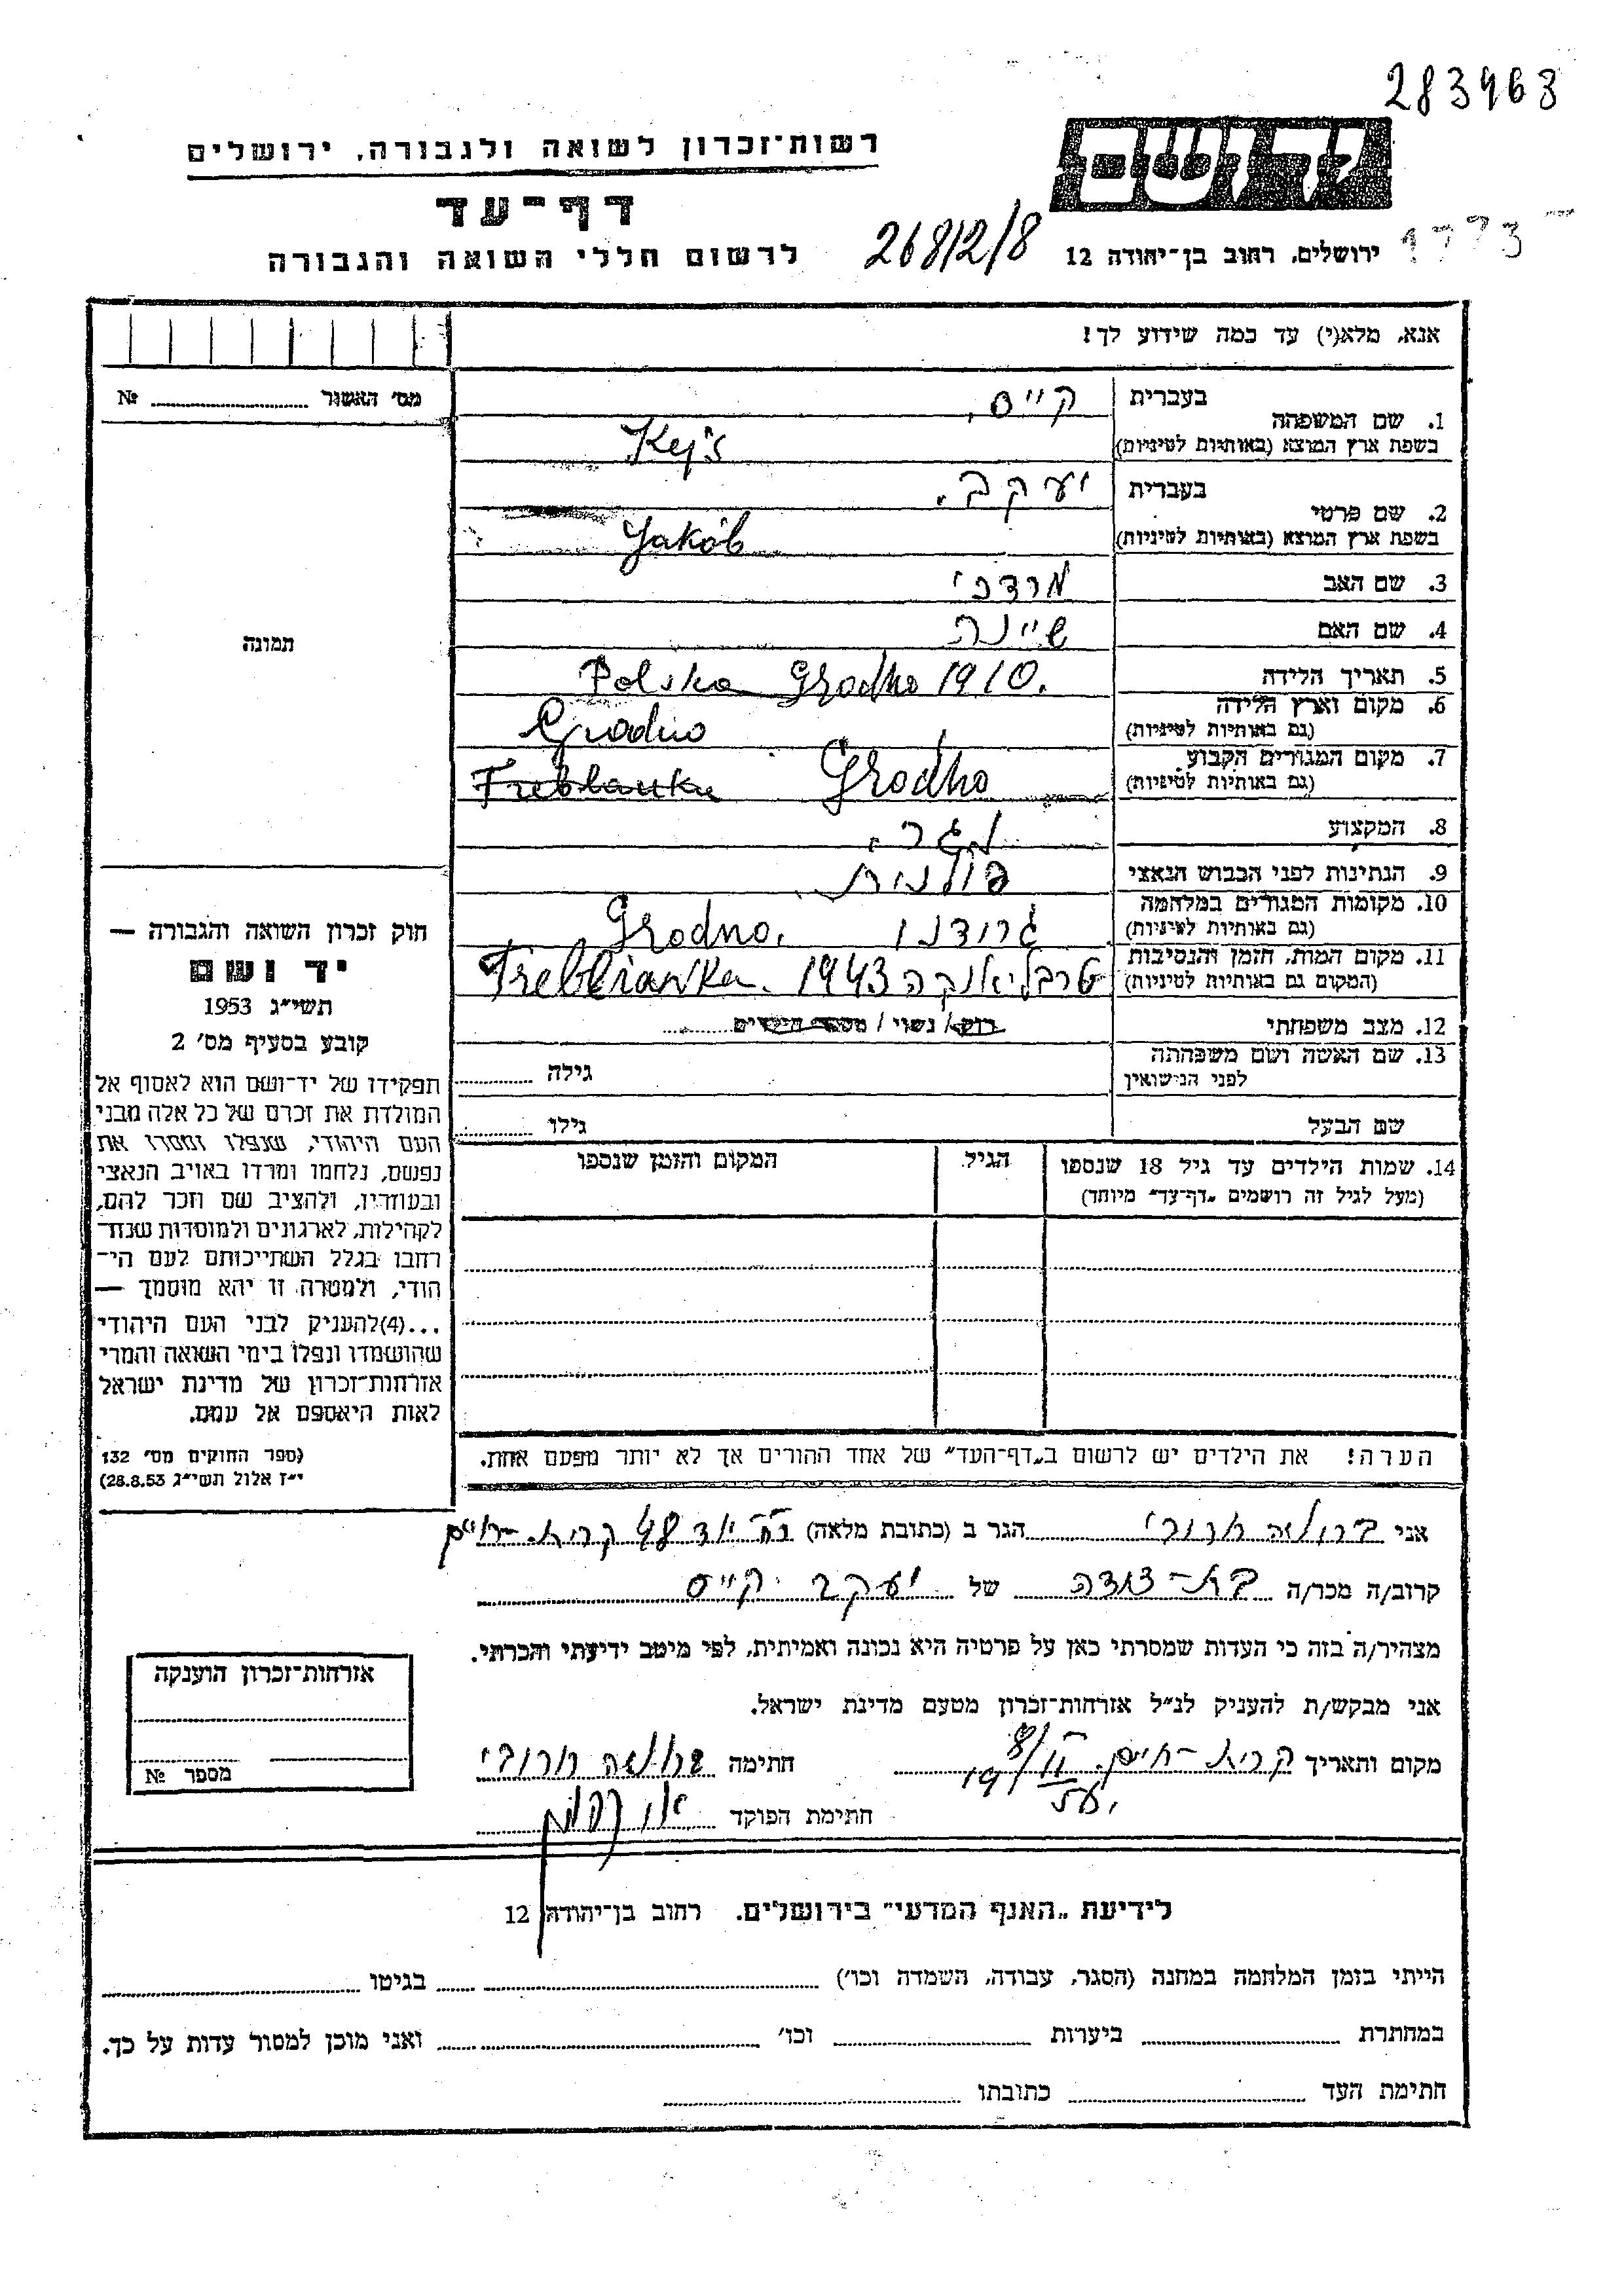 283468
רשות־זכרון לשואה ולגבורה, ירושלים
יד ושם
דף־עד
לרשום חללי השואה והגבורה
268/2/8
ירושלים, רחוב בן־יהודה 12
אנא, מלא(י) עד כמה שידוע לך!
מס׳ האשור № 
1. שם המשפחה
בעברית קייס.
בשפת ארץ המוצא (באותיות לטיניות) Kejs
2. שם פרטי
בעברית יעקב.
בשפת ארץ המוצא (באותיות לטיניות) Jakób
3. שם האב מרדכי
4. שם האם שיינה
5. תאריך הלידה Polska Grodno 1910.
6. מקום וארץ הלידה (גם באותיות לטיניות) Grodno
7. מקום המגורים הקבוע (גם באותיות לטיניות) Grodno
8. המקצוע נגר.
9. הנתינות לפני הכבוש הנאצי פולנית
10. מקומות המגורים במלחמה (גם באותיות לטיניות) גרודנו Grodno.
11. מקום המות, הזמן והנסיבות (המקום גם באותיות לטיניות) טרבליאנקה 1943 Treblianka.
12. מצב משפחתי רוק/ נשוי / מספר הילדים
13. שם האשה ושם משפחתה לפני הנישואין
גילה
שם הבעל
גילו
14. שמות הילדים עד גיל 18 שנספו
(מעל לגיל זה רושמים „דף־עד״ מיוחד)
הגיל
המקום והזמן שנספו
הערה! את הילדים יש לרשום ב„דף־העד״ של אחד ההורים אך לא יותר מפעם אחת.
תמונה
חוק זכרון השואה והגבורה —
יד ושם
תשי״ג 1953
קובע בסעיף מס׳ 2
תפקידו של יד־ושם הוא לאסוף אל
המולדת את זכרם של כל אלה מבני
העם היהודי, שנפלו ומסרו את
נפשם, נלחמו ומרדו באויב הנאצי
ובעוזריו, ולהציב שם וזכר להם,
לקהילות, לארגונים ולמוסדות שנח־
רבו בגלל השתייכותם לעם הי־
הודי, ולמטרה זו יהא מוסמך —
...(4) להעניק לבני העם היהודי
שהושמדו ונפלו בימי השואה והמרי
אזרחות־זכרון של מדינת ישראל
לאות היאספם אל עמם.
(ספר החוקים מס׳ 132
י״ז אלול תשי״ג 28.8.53)
אני חרובי הגר ב (כתובת מלאה) קרית־חיים
קרוב/ה מכר/ה בת־דודה של יעקב קייס
מצהיר/ה בזה כי העדות שמסרתי כאן על פרטיה היא נכונה ואמיתית, לפי מיטב ידיעתי והכרתי.
אני מבקש/ת להעניק לנ״ל אזרחות־זכרון מטעם מדינת ישראל.
מקום ותאריך קרית־חיים. חתימה חרובי
חתימת הפוקד
אזרחות־זכרון הוענקה
מספר №
לידיעת „האגף המדעי״ בירושלים. רחוב בן־יהודה 12
הייתי בזמן המלחמה במחנה (הסגר, עבודה, השמדה וכו׳) בגיטו
במחתרת ביערות וכו׳ ואני מוכן למסור עדות על כך.
חתימת העד כתובתו